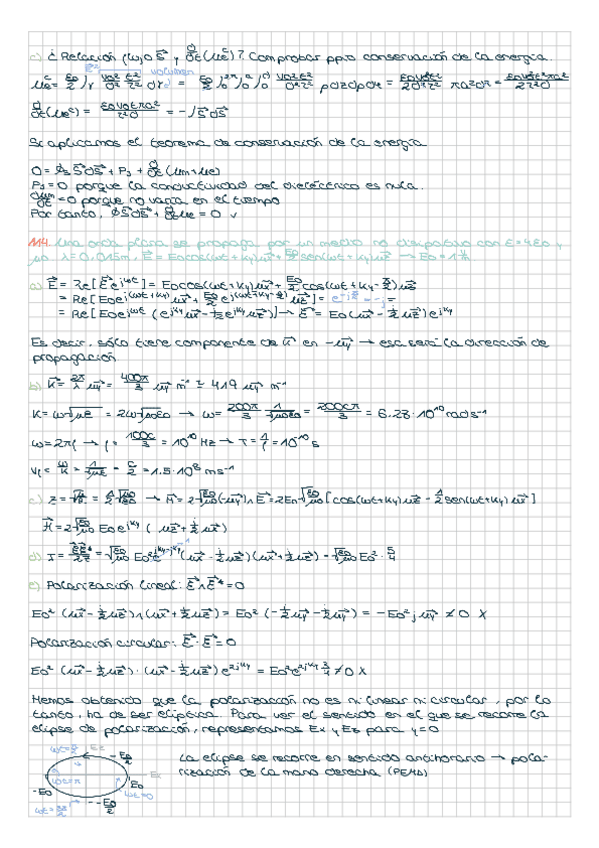 c) ¿Relación ∫∫(A) S⃗ y ∂/∂t(Ue)? Comprobar ppio conservación de la energía.
∂/∂t(Ue) = = -∫S⃗dS⃗
Si aplicamos el teorema de conservación de la energía
0 = ∮S⃗dS⃗ + Pd + ∂/∂t(Um+Ue)
Pd = 0 porque la conductividad del dieléctrico es nula.
∂Um/∂t = 0 porque no varía en el tiempo
Por tanto, ∮S⃗dS⃗ + ∂/∂t Ue = 0 ✓
114. Una onda plana se propaga por un medio no disipativo con ε=4ε0 y
μ0. λ=0,015m, E⃗ = E0cos(ωt+ky)ux⃗ + E0/2 sen(ωt+ky)uz⃗ → E0=1 V/m
a) E⃗ = Re[E⃗e^jωt] = E0cos(ωt+ky)ux⃗ + E0/2 cos(ωt+ky-π/2)uz⃗
= Re[E0e^j(ωt+ky)ux⃗ + E0/2 e^j(ωt+ky-π/2)uz⃗] = e^-jπ/2 = -j =
= Re[E0e^jωt (e^jky ux⃗ - j1/2 e^jky uz⃗)] → E⃗ = E0(ux⃗ - j/2 uz⃗)e^jky
Es decir, sólo tiene componente de k⃗ en -uy⃗ → esa será la dirección de
propagación
b) K⃗ = 2π/λ uy⃗ = 400π/3 uy⃗ m^-1 = 419 uy⃗ m^-1
K = ω√με = 2ω√μ0ε0 → ω = 200π/3 1/√μ0ε0 = 200cπ/3 = 6.28·10^10 rad s^-1
ω = 2πf → f = 100c/3 = 10^10 Hz → T = 1/f = 10^-10 s
vf = ω/k = 1/√με = c/2 = 1.5·10^8 ms^-1
c) Z = √μ/ε = 1/2 √μ0/ε0 → H⃗ = 2√ε0/μ0 (-uy⃗)∧E⃗ = 2E0√ε0/μ0 [cos(ωt+ky)uz⃗ - 1/2 sen(ωt+ky)ux⃗]
H⃗ = 2√ε0/μ0 E0e^jky (uz⃗ + j/2 ux⃗)
d) I = E⃗E⃗*/2Z = √ε0/μ0 E0² e^jky-jky (ux⃗ - j/2 uz⃗)(ux⃗ + j/2 uz⃗) = √ε0/μ0 E0² · 5/4
e) Polarización lineal: E⃗∧E⃗* = 0
E0² (ux⃗ - j/2 uz⃗)∧(ux⃗ + j/2 uz⃗) = E0² (-j/2 uy⃗ - j/2 uy⃗) = -E0² j uy⃗ ≠ 0 X
Polarización circular: E⃗·E⃗ = 0
E0² (ux⃗ - j/2 uz⃗)·(ux⃗ - j/2 uz⃗) e^2jky = E0² e^2jky 3/4 ≠ 0 X
Hemos obtenido que la polarización no es ni linear ni circular, por lo
tanto, ha de ser elíptica. Para ver el sentido en el que se recorre la
elipse de polarización, representamos Ex y Ez para y=0
La elipse se recorre en sentido antihorario → pola-
rización de la mano derecha (PEMD)
ωt=π/2
Ez
E0/2
Ex
ωt=π
E0
-E0
ωt=0
ωt=3π/2
-E0/2